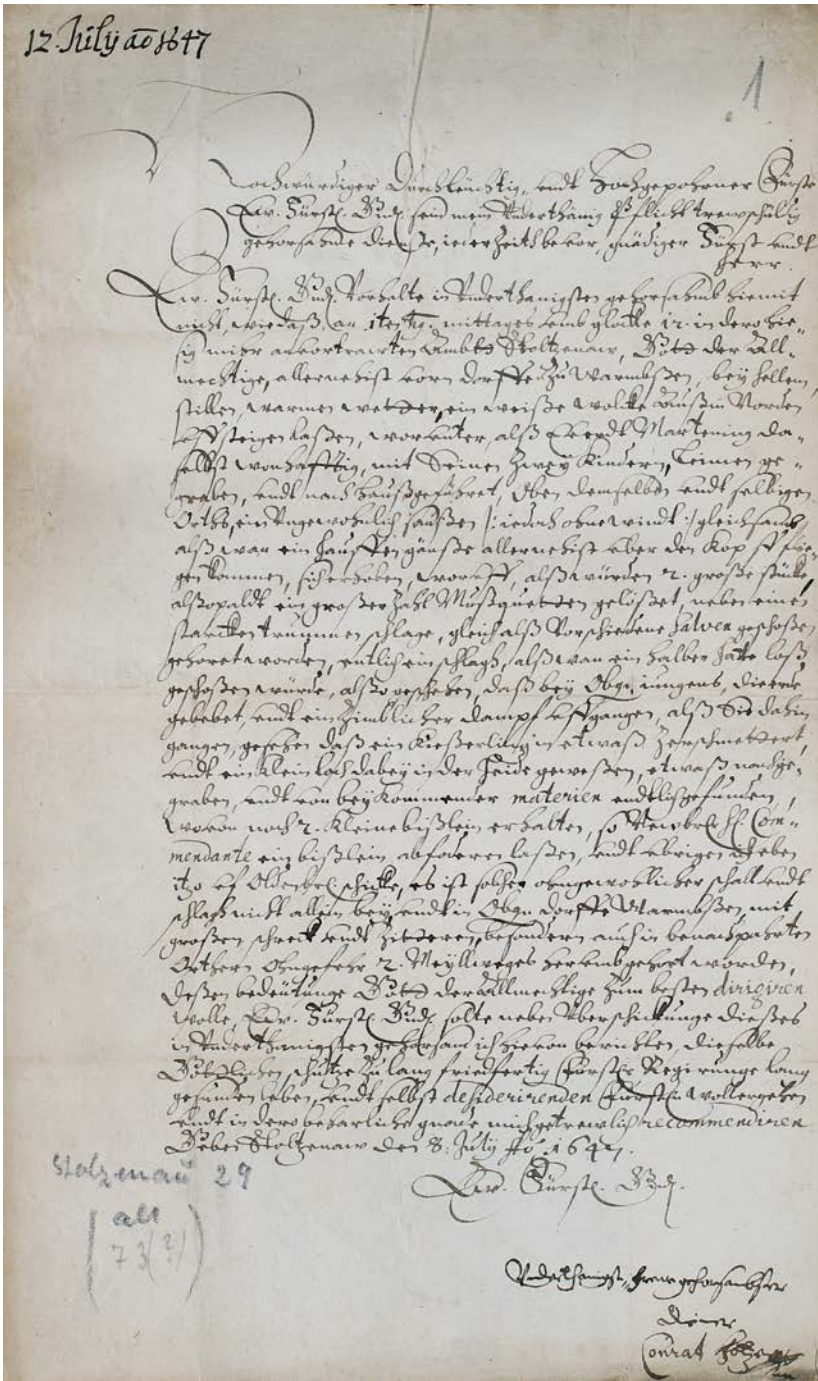 12. July aō 1647
1
Hochwürdiger Durchleüchtig. undt Hochgepohrner Fürst
Ew. Fürstl. Gnd. seind mein Underthänig Pflicht trewschuldig
gehorsahmbe dienste, ieder Zeith bevor, gnädiger Fürst undt
Herr.
Ew. Fürstl. Gnd. Vorhalte in Underthänigsten gehorsahmb hiemit
nicht, wie daß, an mittages umb glocke 12. in dero hie-
sig mihr anvertrawten Ambts Stoltzenaw, Gott der All-
mechtige, allernehist vorn dorffe Zu Warmbßen, bey hellem,
stillen, warmen wetter, ein weiße wolcke Auß in Norden
uffsteigen laßen, worunter, alß Martening da-
selbst wonhafftig, mit Seinen Zwey Kindern, Leimen ge-
graben, undt nach Hauß geführet, Oben demselben undt selbigen
Orths, ein Ungewohnlich saußen /: iedoch ohne windt :/ gleichsamb
alß wan ein hauffen gänße allernehist uber den Kop flie-
gen kommen, sich erhoben, woruff, alß würden 2. große stücke,
alßopaldt ein großer Zahl Mußquetten gelößet, neben einen
starcken trummen schlage, gleich alß Vorschiedene salven geschoßen
gehoret worden, entlich ein schlagh, alß wan ein halber loß
geschoßen würde, alßo geschehen, daß bey Obgn. iungens, die erde
gebebet, undt ein Zimblicher dampf uffgangen, alß Sie dahin
gangen, gesehen daß ein Kießerling in etwaß Zerschmettert,
undt ein Klein loch dabey in der Heide geweßen, etwaß nachge-
graben, undt von bey Kommender materien endtlich gefunden,
Wovon noch 2. Kleine bißlein erhalten, so H. Com-
mendante ein bißlein abfoderen laßen, undt ubrigen eben
itzo uf schicke, es ist solcher ohngewohlicher schall undt
schlagh nicht allein bey undt in Obgn. dorffe Warmbßen, mit
großen schreck undt Zitteren, besondern auch in benachpahrten
Orthern Ohngefehr 2. Meyllweges herumb gehort worden,
deßen bedeütunge Gott der Allmechtige Zum besten dirigiren
wolle, Ew. Fürstl. Gnd. solte neben Uberschickunge dießes
in Underthänigsten gehorsam ich hievon berichten, dieselbe
Göttlichen schutze Zu lang friedfertig Fürstl. Regirunge lang
gesunden leben, undt selbst desiderirenden Fürstl. wollergehen
undt in dero beharliche gnade mich getrewlich recommendiren
Geben Stoltzenaw den 8. July Ao. 1647.
Ew. Fürstl. Gnd.
Stolzenau 29
(alt
73(?))
Underthänigst, trewgehorsambster
diener
Conrat